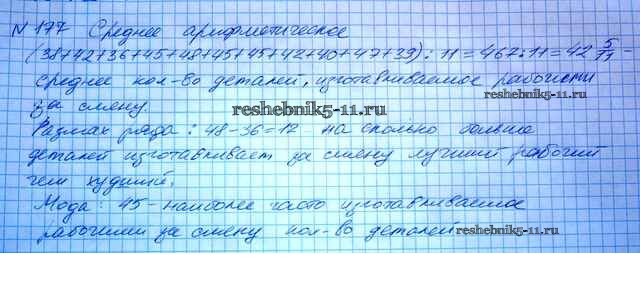 № 177 Среднее арифметическое
(38+42+36+45+48+45+45+42+40+47+39):11=467:11=42 5/11 -
среднее кол-во деталей, изготавливаемое рабочими
за смену.
reshebnik5-11.ru
reshebnik5-11.ru
Размах ряда: 48-36=12 на сколько больше
деталей изготавливает за смену лучший рабочий
чем худший.
Мода: 45 - наиболее часто изготавливаемое
рабочими за смену кол-во деталей
reshebnik5-11.ru